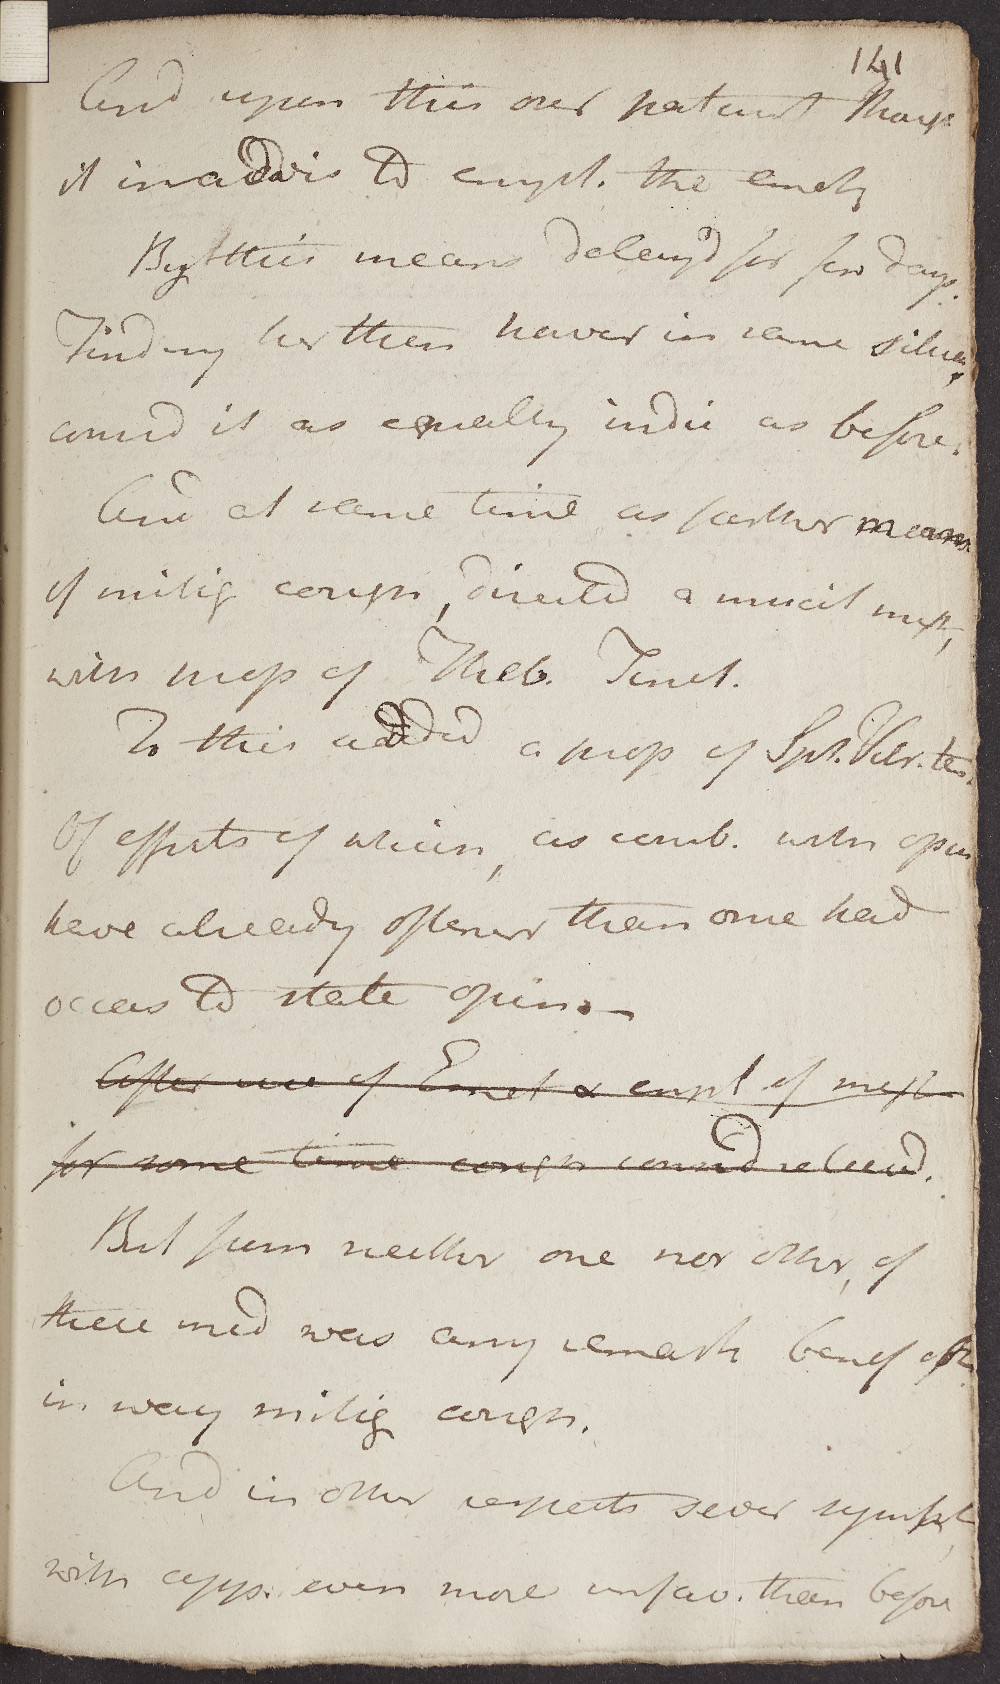 141
And upon this over patient thoug
it inadvis to empl. the emetic
By this means delay'd for few days.
Finding her then howev in same situa,
considd it as equally indic as before.
And at same time as farther means
of mitig cough, directed a mucil mixt,
with prop of Theb. Tinct.
To this added a prop of Spt. Vitr. ten.
Of effects of which, as comb. with opium
have already oftener than once had
occas to state opin. —
After use of Emet & empl of mixt
for some time cough considd relievd.
But from neither one nor other, of
these med was any remark benef eff.
in way mitig cough.
And in other respects sever sympt,
with app. even more unfav. than before